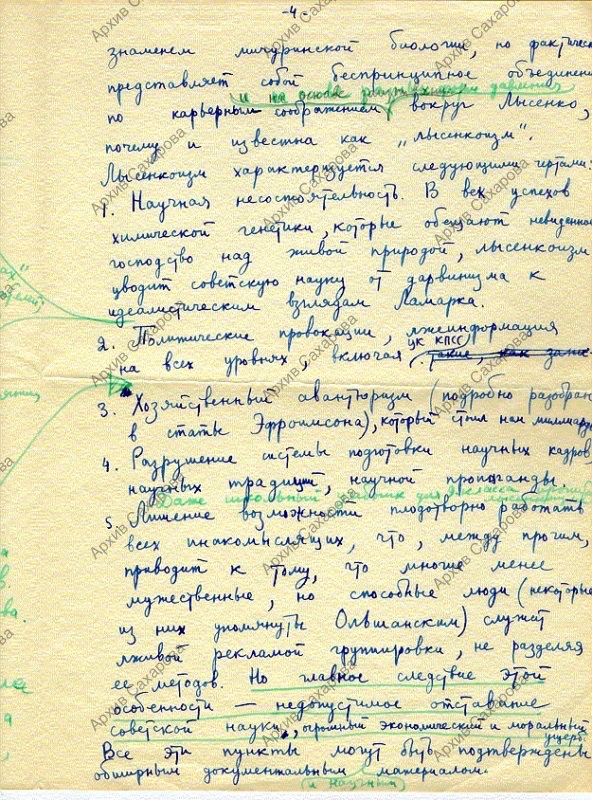 -4-
знаменем мичуринской биологии, но фактически
представляет собой беспринципное объединение
и на основе
по карьерным соображениям вокруг Лысенко,
почему и известна как „лысенкоизм".
Лысенкоизм характеризуется следующими чертами:
1. Научная несостоятельность. В век успехов
химической генетики, которые обещают невиданное
господство над живой природой, лысенкоизм
уводит советскую науку от дарвинизма к
идеалистическим взглядам Ламарка.
2. Политические провокации, лжеинформация
на всех уровнях, включая ЦК КПСС. такие, как
3. Хозяйственный авантюризм (подробно разобран
в статье Эфроимсона), который стоил нам миллиарды
4. Разрушение системы подготовки научных кадров,
научных традиций, научной пропаганды.
Даже школьный для класса
5. Лишение возможности плодотворно работать
всех инакомыслящих, что, между прочим,
приводит к тому, что многие менее
мужественные, но способные люди (некоторые
из них упомянуты Ольшанским) служат
лживой рекламой группировки, не разделяя
ее методов. Но главное следствие этой
особенности — недопустимое отставание
советской науки, огромный экономический и моральный
ущерб.
Все эти пункты могут быть подтверждены
обширным документальным материалом.
(и научным)
Архив Сахарова